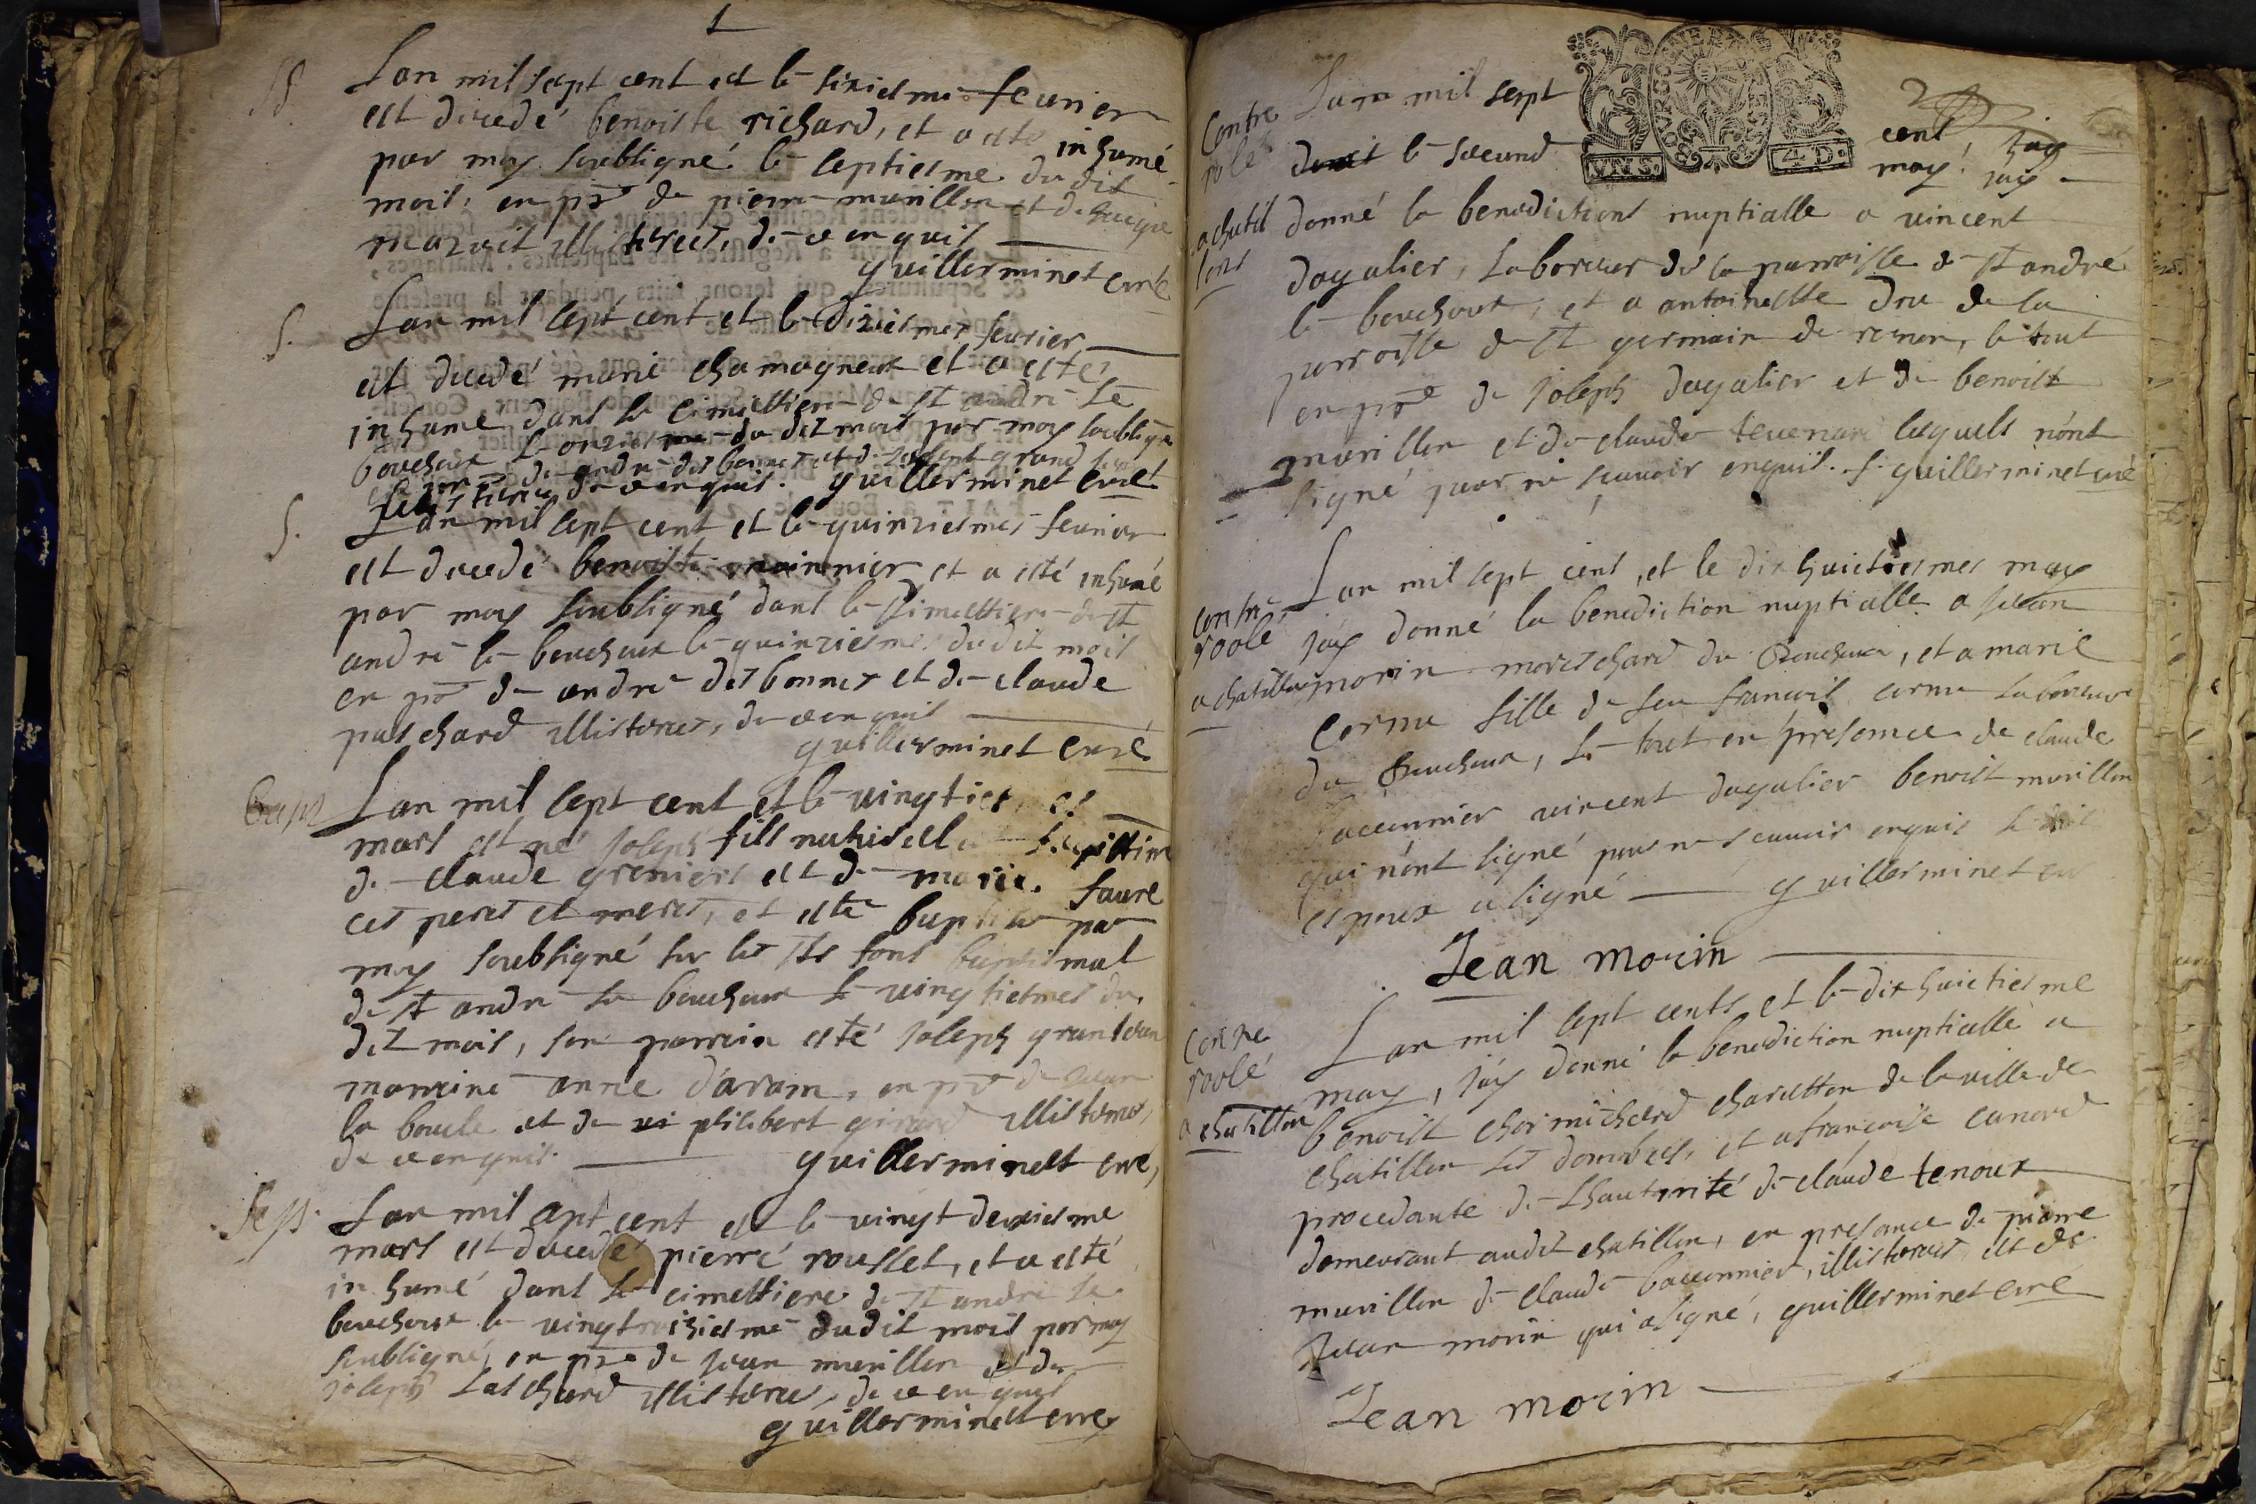 1
S.
Lan mil sept cent et le sixiesme feurier
est decedé benoiste richard, et a esté inhumé
par moy soubsigné le septiesme du dit
mois, en pñce de pierre murillon et de
illisteres, de ce enquis
guillerminet curé
S.
Lan mil sept cent et le dixiesmes feurier
est decedé marie chamagneux et a esté
inhumé dans le cimettiere de st andré le
bouchoux le onziesme du dit mois par moy soubsigné
en pñce de andré des bonnes et de
illisteres de ce enquis. guillerminet curé
S.
Lan mil sept cent et le quinziesmes feurier
est decedé benoiste et a esté inhumé
par moy soubsigné dans le simettiere de st
andré le bouchoux le quinziesmes dudit mois
en pñce de andré des bonnes et de claude
paschard illisteres, de ce enquis
guillerminet curé
bapt
Lan mil sept cent et le vingtiesmes
mars est né joseph fils naturel et legittime
de claude greniers et de marie faure
ces peres et meres, et esté baptisé par
moy soubsigné sur les sts fons baptismal
de st andré le bouchoux le vingtiesmes du
dit mois, son parrain esté joseph
marraine anne d'aram, en pñce de jean
la boucle et de philibert girard illisteres,
de ce enquis. guillerminet curé,
sep.
Lan mil sept cent et le vingt deuxiesme
mars est decedé pierre rousset, et a esté
inhumé dans le cimettiere de st andré le
bouchoux le vingtroisiesme dudit mois par moy
soubsigné, en pñce de jean murillon et de
joseph laschard illisteres, de ce enquis
guillerminet curé
BOURGOGNE
VN S.
4 D.
Contre
rolé
a chatil
lons
Lan mil sept cent
le second may, jay
donné la benedictions nuptialle a vincent
dagalier, laboreur de la parroisse de st andré
le bouchoux, et a antoinette dru de la
parroisse de st germain de renon, le tout
en pñce de joseph dagalier et de benoist
murillon et de claude tevenard lesquels n'ont
signé pour ne scauoir enquis. guillerminet curé
contre
roolé
a chatillon
Lan mil sept cens, et le dix huictiesmes may
jay donné la benediction nuptialle a jean
morin mareschard du Bouchoux, et a marie
corme fille de feu francois corme laboreur
du Bouchoux, le tout en presence de claude
bacconnier vincent dagalier benoist murillon
qui n'ont signé pour ne scauoir enquis le dit
espoux a signé guillerminet curé
Jean morin
Contre
roolé
a chatillon
Lan mil sept cents et le dix huictiesme
may, jay donné la benediction nuptialle a
benoist chormichard charetton de la ville de
chatillon les dombes, et a francoise canard
procedante de l'hautorité de claude tenoux
demeurant audit chatillon, en presance de pierre
murillon de claude bacconnier, illisteres et de
Jean morin qui a signé, guillerminet curé
Jean morin